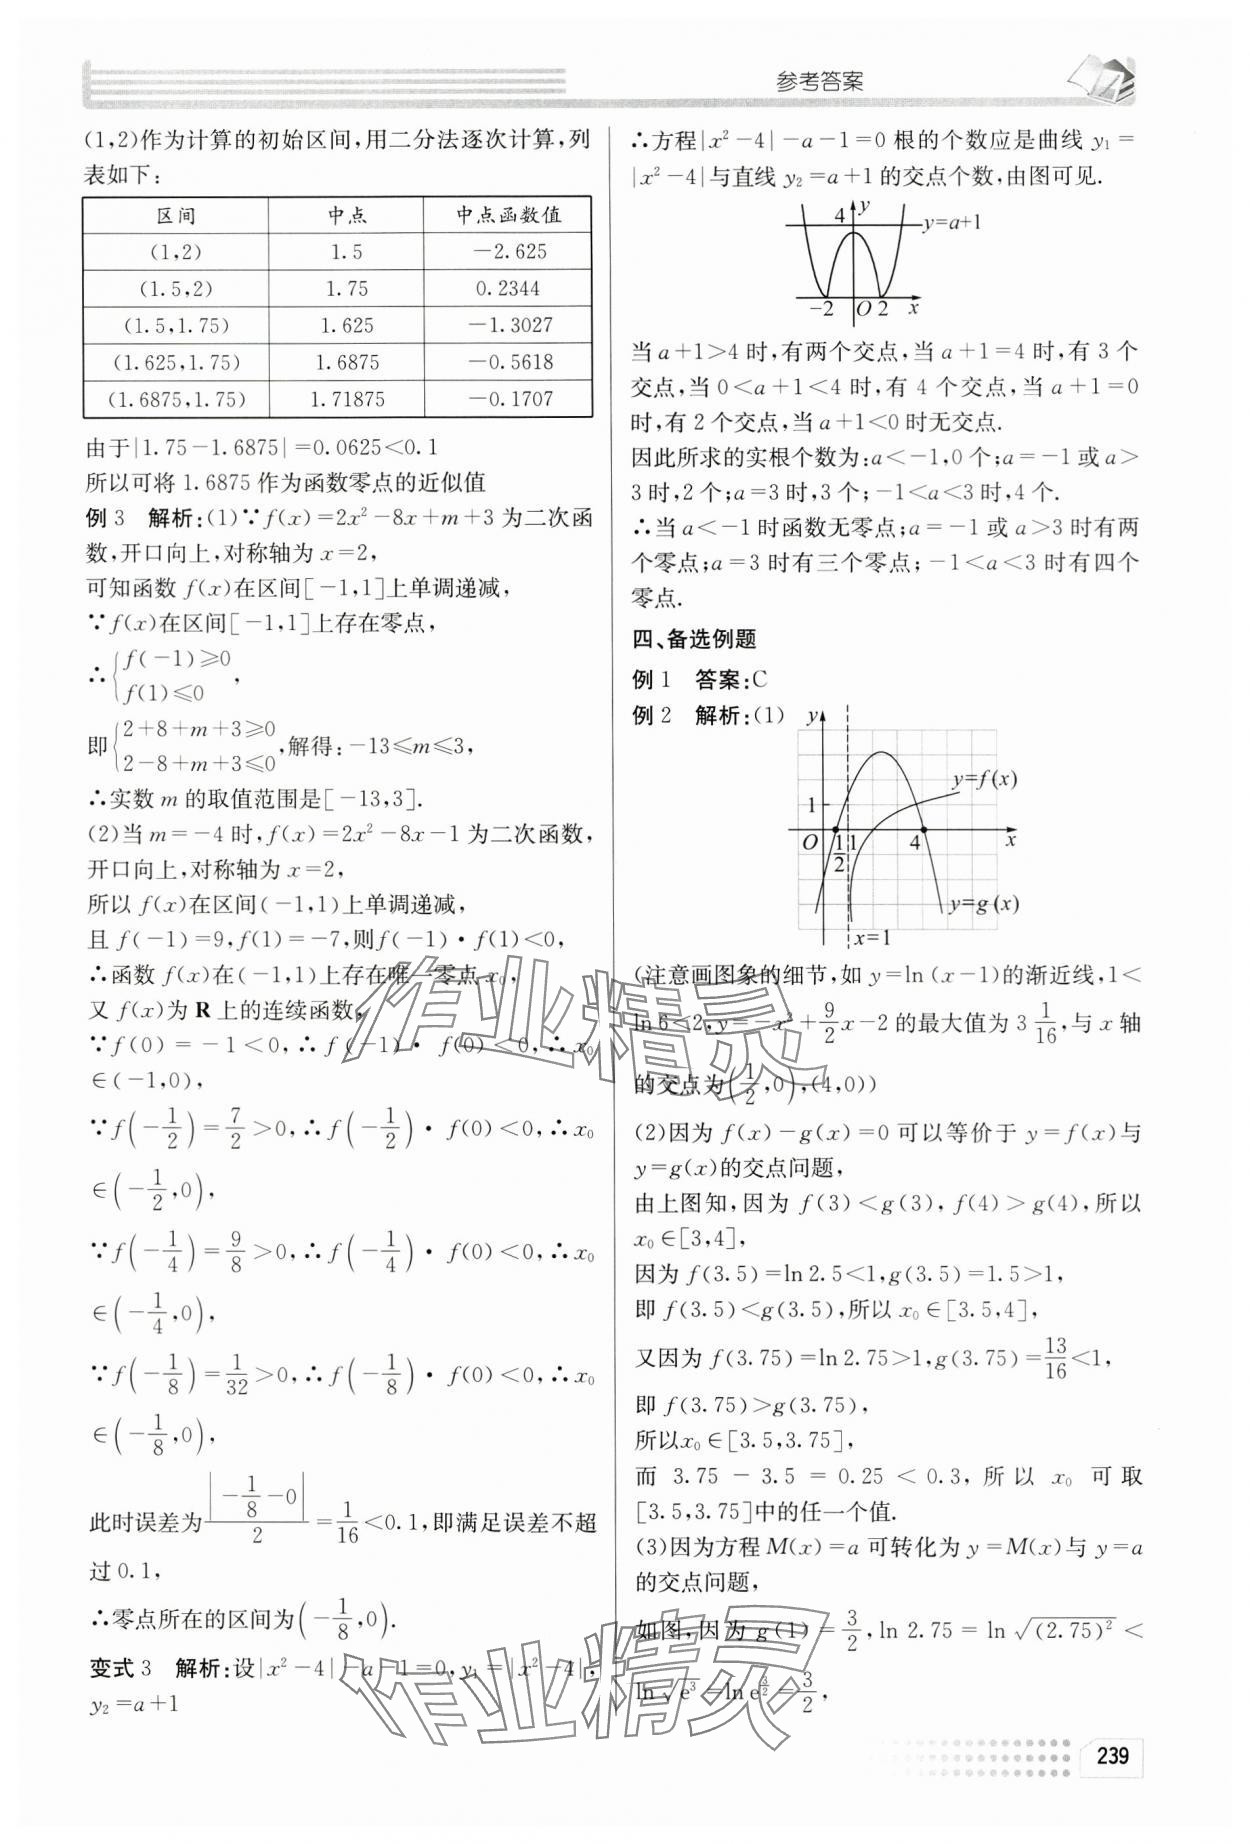 参考答案
(1,2)作为计算的初始区间,用二分法逐次计算,列
表如下:
区间 中点 中点函数值
(1,2) 1.5 −2.625
(1.5,2) 1.75 0.2344
(1.5,1.75) 1.625 −1.3027
(1.625,1.75) 1.6875 −0.5618
(1.6875,1.75) 1.71875 −0.1707
由于|1.75−1.6875|=0.0625<0.1
所以可将1.6875作为函数零点的近似值
例3 解析:(1)∵f(x)=2x²−8x+m+3为二次函
数,开口向上,对称轴为x=2,
可知函数f(x)在区间[−1,1]上单调递减,
∵f(x)在区间[−1,1]上存在零点,
∴{f(−1)≥0
f(1)≤0,
即{2+8+m+3≥0
2−8+m+3≤0,解得:−13≤m≤3,
∴实数m的取值范围是[−13,3].
(2)当m=−4时,f(x)=2x²−8x−1为二次函数,
开口向上,对称轴为x=2,
所以f(x)在区间(−1,1)上单调递减,
且f(−1)=9,f(1)=−7,则f(−1)·f(1)<0,
∴函数f(x)在(−1,1)上存在唯一零点x₀,
又f(x)为R上的连续函数,
∵f(0)=−1<0,∴f(−1)·f(0)<0,∴x₀
∈(−1,0),
∵f(−1/2)=7/2>0,∴f(−1/2)·f(0)<0,∴x₀
∈(−1/2,0),
∵f(−1/4)=9/8>0,∴f(−1/4)·f(0)<0,∴x₀
∈(−1/4,0),
∵f(−1/8)=1/32>0,∴f(−1/8)·f(0)<0,∴x₀
∈(−1/8,0),
此时误差为|−1/8−0|/2=1/16<0.1,即满足误差不超
过0.1,
∴零点所在的区间为(−1/8,0).
变式3 解析:设|x²−4|−a−1=0,y₁=|x²−4|,
y₂=a+1
∴方程|x²−4|−a−1=0根的个数应是曲线y₁=
|x²−4|与直线y₂=a+1的交点个数,由图可见.
4 y y=a+1
−2 O 2 x
当a+1>4时,有两个交点,当a+1=4时,有3个
交点,当0<a+1<4时,有4个交点,当a+1=0
时,有2个交点,当a+1<0时无交点.
因此所求的实根个数为:a<−1,0个;a=−1或a>
3时,2个;a=3时,3个;−1<a<3时,4个.
∴当a<−1时函数无零点;a=−1或a>3时有两
个零点;a=3时有三个零点;−1<a<3时有四个
零点.
四、备选例题
例1 答案:C
例2 解析:(1)
y
y=f(x)
1
O 1/2 1 4 x
y=g(x)
x=1
(注意画图象的细节,如y=ln(x−1)的渐近线,1<
ln6<2,y=−x²+9/2x−2的最大值为3 1/16,与x轴
的交点为(1/2,0),(4,0))
(2)因为f(x)−g(x)=0可以等价于y=f(x)与
y=g(x)的交点问题,
由上图知,因为f(3)<g(3),f(4)>g(4),所以
x₀∈[3,4],
因为f(3.5)=ln2.5<1,g(3.5)=1.5>1,
即f(3.5)<g(3.5),所以x₀∈[3.5,4],
又因为f(3.75)=ln2.75>1,g(3.75)=13/16<1,
即f(3.75)>g(3.75),
所以x₀∈[3.5,3.75],
而3.75−3.5=0.25<0.3,所以x₀可取
[3.5,3.75]中的任一个值.
(3)因为方程M(x)=a可转化为y=M(x)与y=a
的交点问题,
如图,因为g(1)=3/2,ln2.75=ln√(2.75)²<
ln√e³=lne^(3/2)=3/2,
作业精灵
作业精灵
239